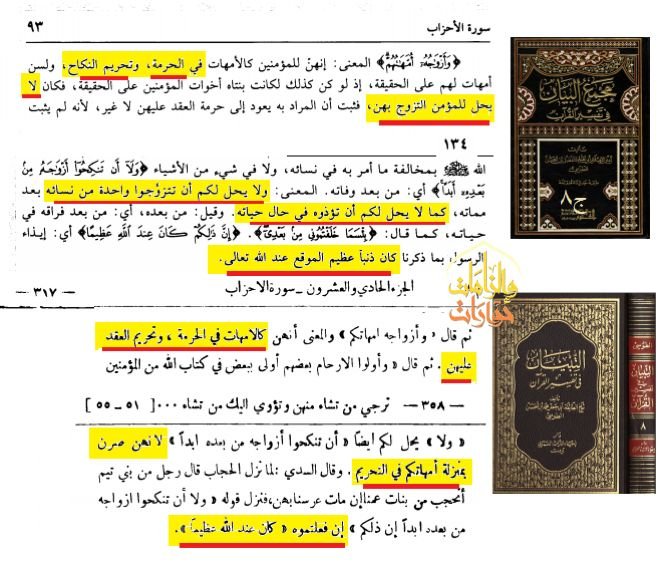 سورة الأحزاب
٩٣
﴿وَأَزْوَاجُهُ أُمَّهَاتُهُمْ﴾ المعنى: إنهنّ للمؤمنين كالأمهات في الحرمة، وتحريم النكاح، ولسن
أمهات لهم على الحقيقة، إذ لو كن كذلك لكانت بناته أخوات المؤمنين على الحقيقة، فكان لا
يحل للمؤمن التزوج بهن، فثبت أن المراد به يعود إلى حرمة العقد عليهن لا غير، لأنه لم يثبت
١٣٤
الله ﷺ بمخالفة ما أمر به في نسائه، ولا في شيء من الأشياء ﴿وَلَا أَن تَنكِحُوا أَزْوَاجَهُ مِن
بَعْدِهِ أَبَداً﴾ أي: من بعد وفاته. المعنى: ولا يحل لكم أن تتزوّجوا واحدة من نسائه بعد
مماته، كما لا يحل لكم أن تؤذوه في حال حياته. وقيل: من بعده، أي: من بعد فراقه في
حياته، كما قال: ﴿بِئْسَمَا خَلَفْتُمُونِي مِن بَعْدِي﴾. ﴿إِنَّ ذَلِكُمْ كَانَ عِندَ اللَّهِ عَظِيماً﴾ أي: إيذاء
الرسول بما ذكرنا كان ذنباً عظيم الموقع عند الله تعالى.
الجزء الحادي والعشرون ـ سورة الاحزاب
— ٣١٧ —
ثم قال « وأزواجه امهاتكم » والمعنى أنهن كالامهات في الحرمة ، وتحريم العقد
عليهن . ثم قال « وأولوا الارحام بعضهم أولى ببعض في كتاب الله من المؤمنين
— ٣٥٨ — ترجي من تشاء منهن وتؤوي اليك من تشاء ٠٠٠[ ٥١ ـ ٥٥ ]
« ولا » يحل لكم ايضاً « أن تنكحوا أزواجه من بعده ابداً » لانهن صرن
بمنزلة أمهاتكم في التحريم . وقال السدي : لما نزل الحجاب قال رجل من بني تيم
أنحجب من بنات عمنا إن مات عرسنا بهن، فنزل قوله « ولا أن تنكحوا ازواجه
من بعده ابداً إن ذلكم » إن فعلتموه « كان عند الله عظيماً » .
مجمع البيان
في تفسير القرآن
ج٨
والزامات
حوارات
التبيان
في تفسير القرآن
الطوسي
التبيان
القرآن
٨